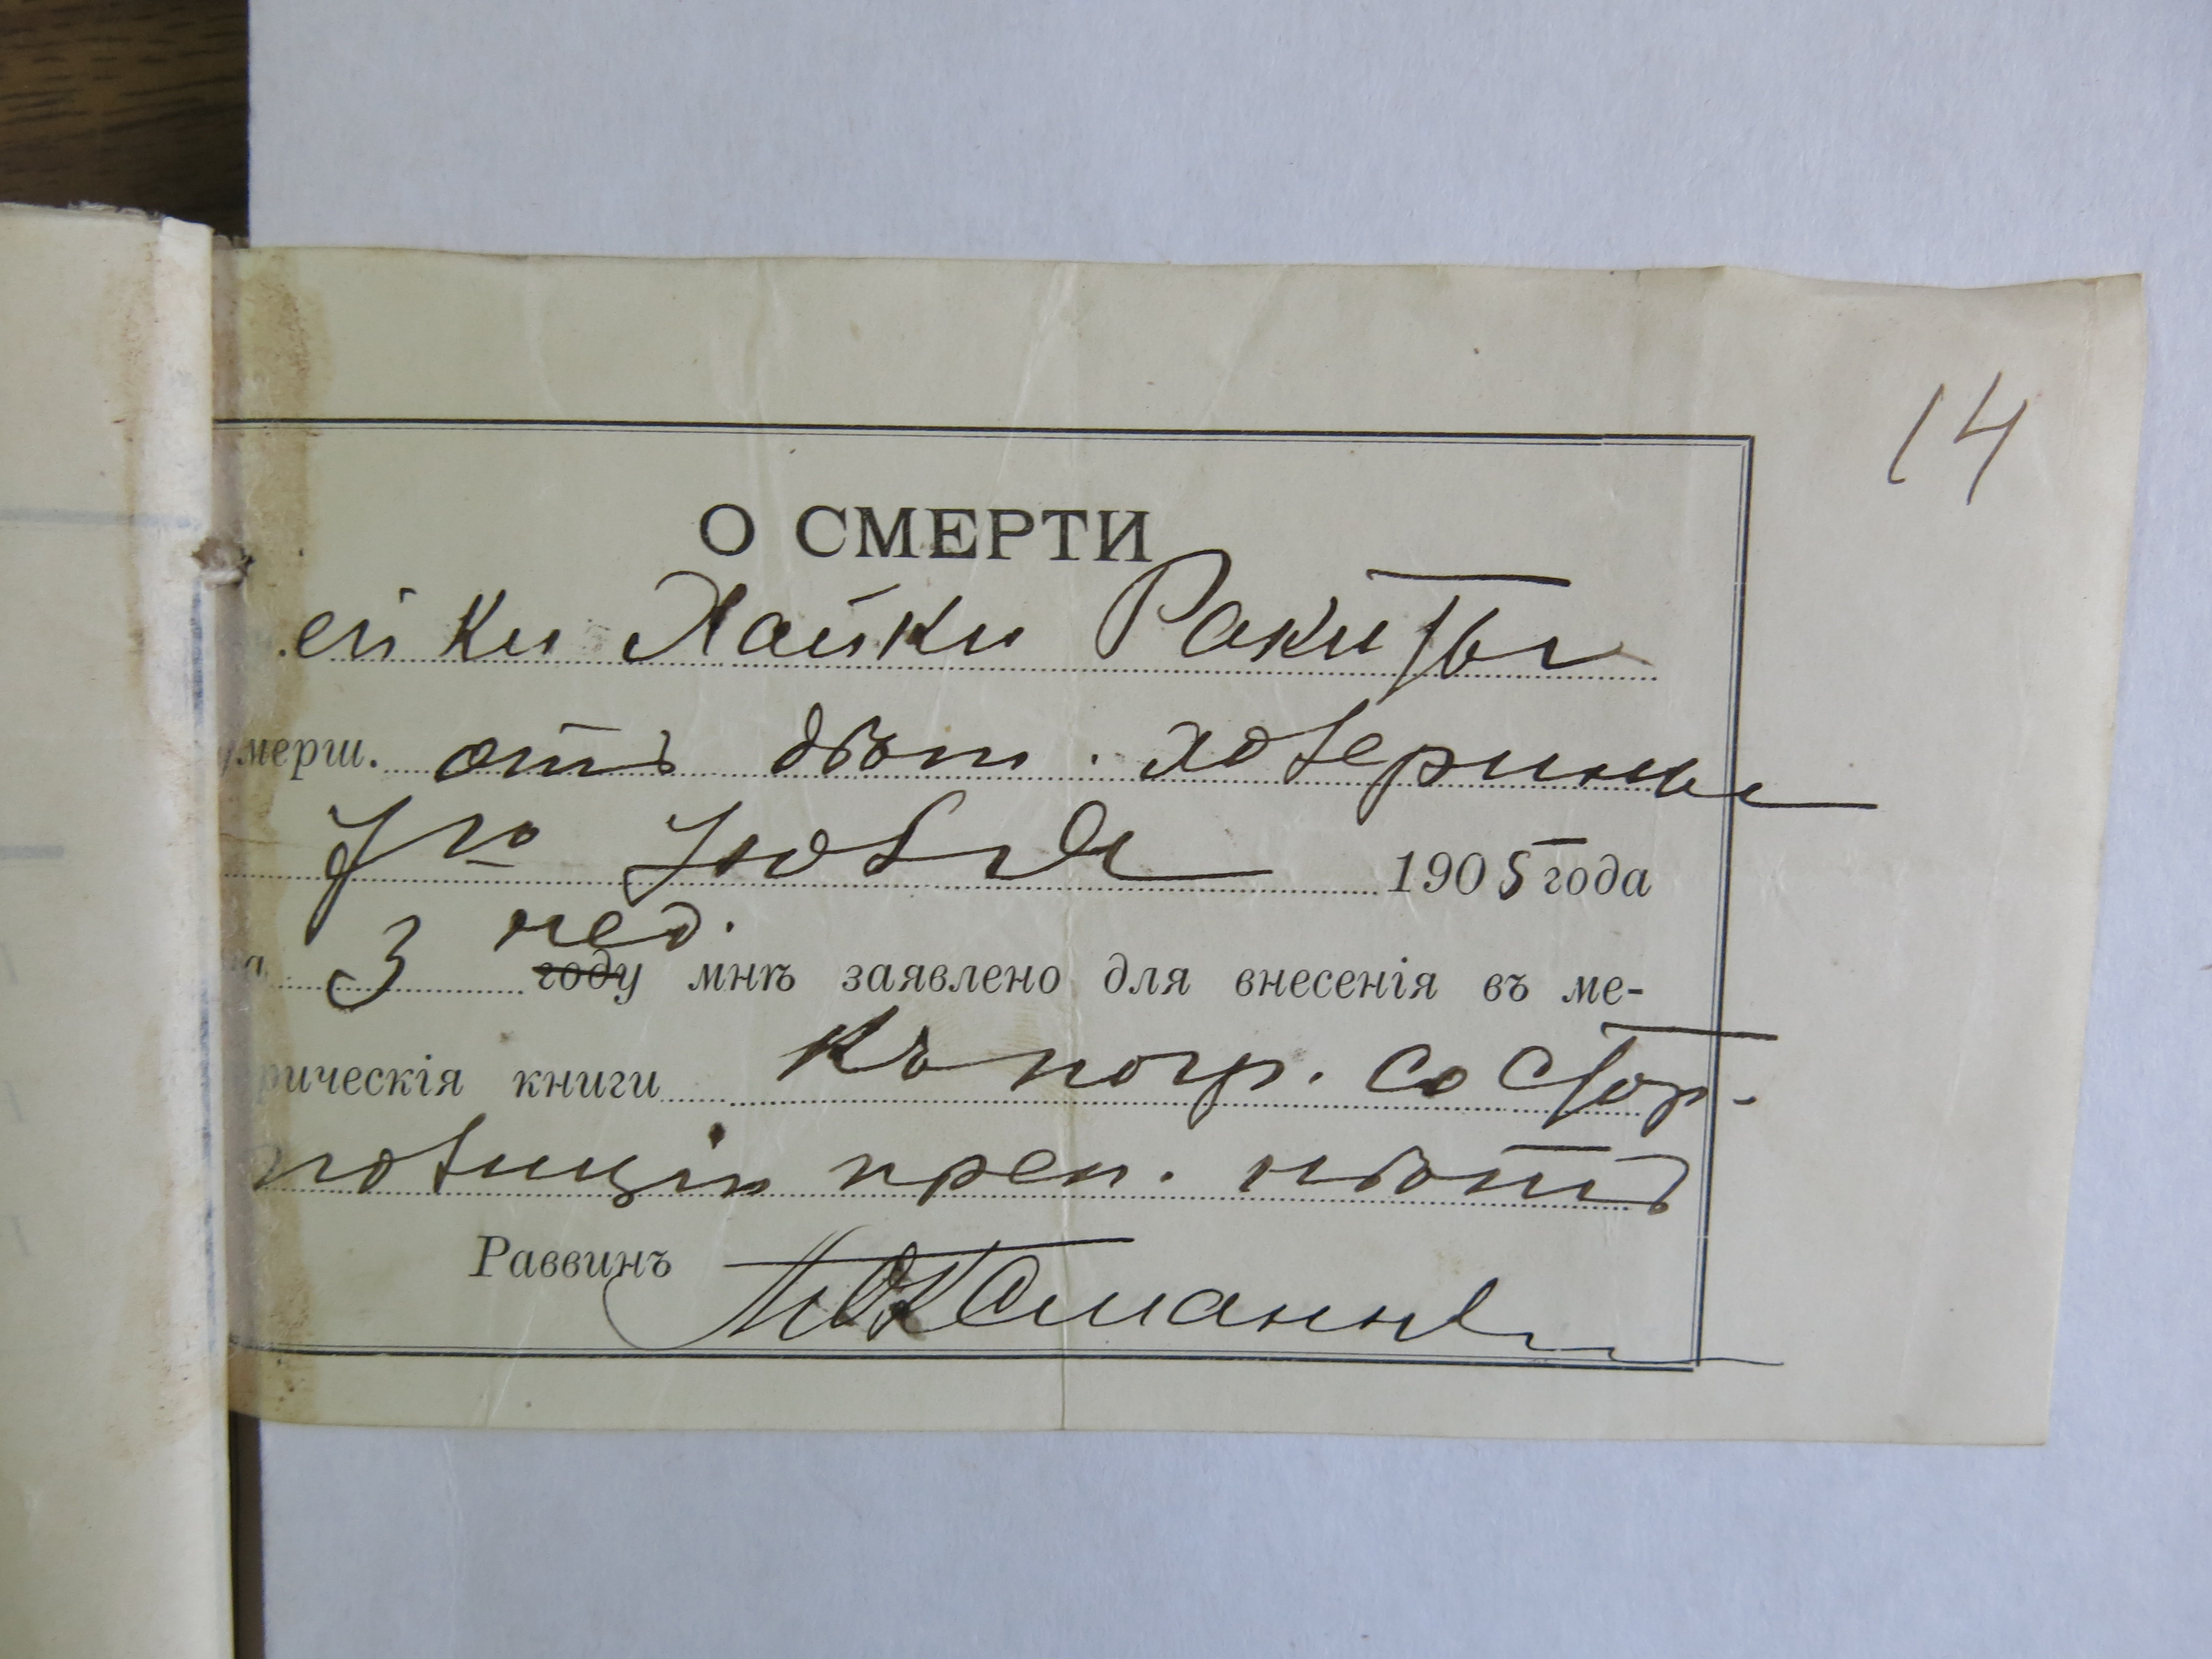 14
О СМЕРТИ
ейки Хайки Ракиты
умерш. отъ дѣт. холерины
7го Юля 1905 года
на 3 нед. году мнѣ заявлено для внесенія въ ме-
рическія книги Къ погр. со стор.
полиціи преп. нѣтъ
Раввинъ